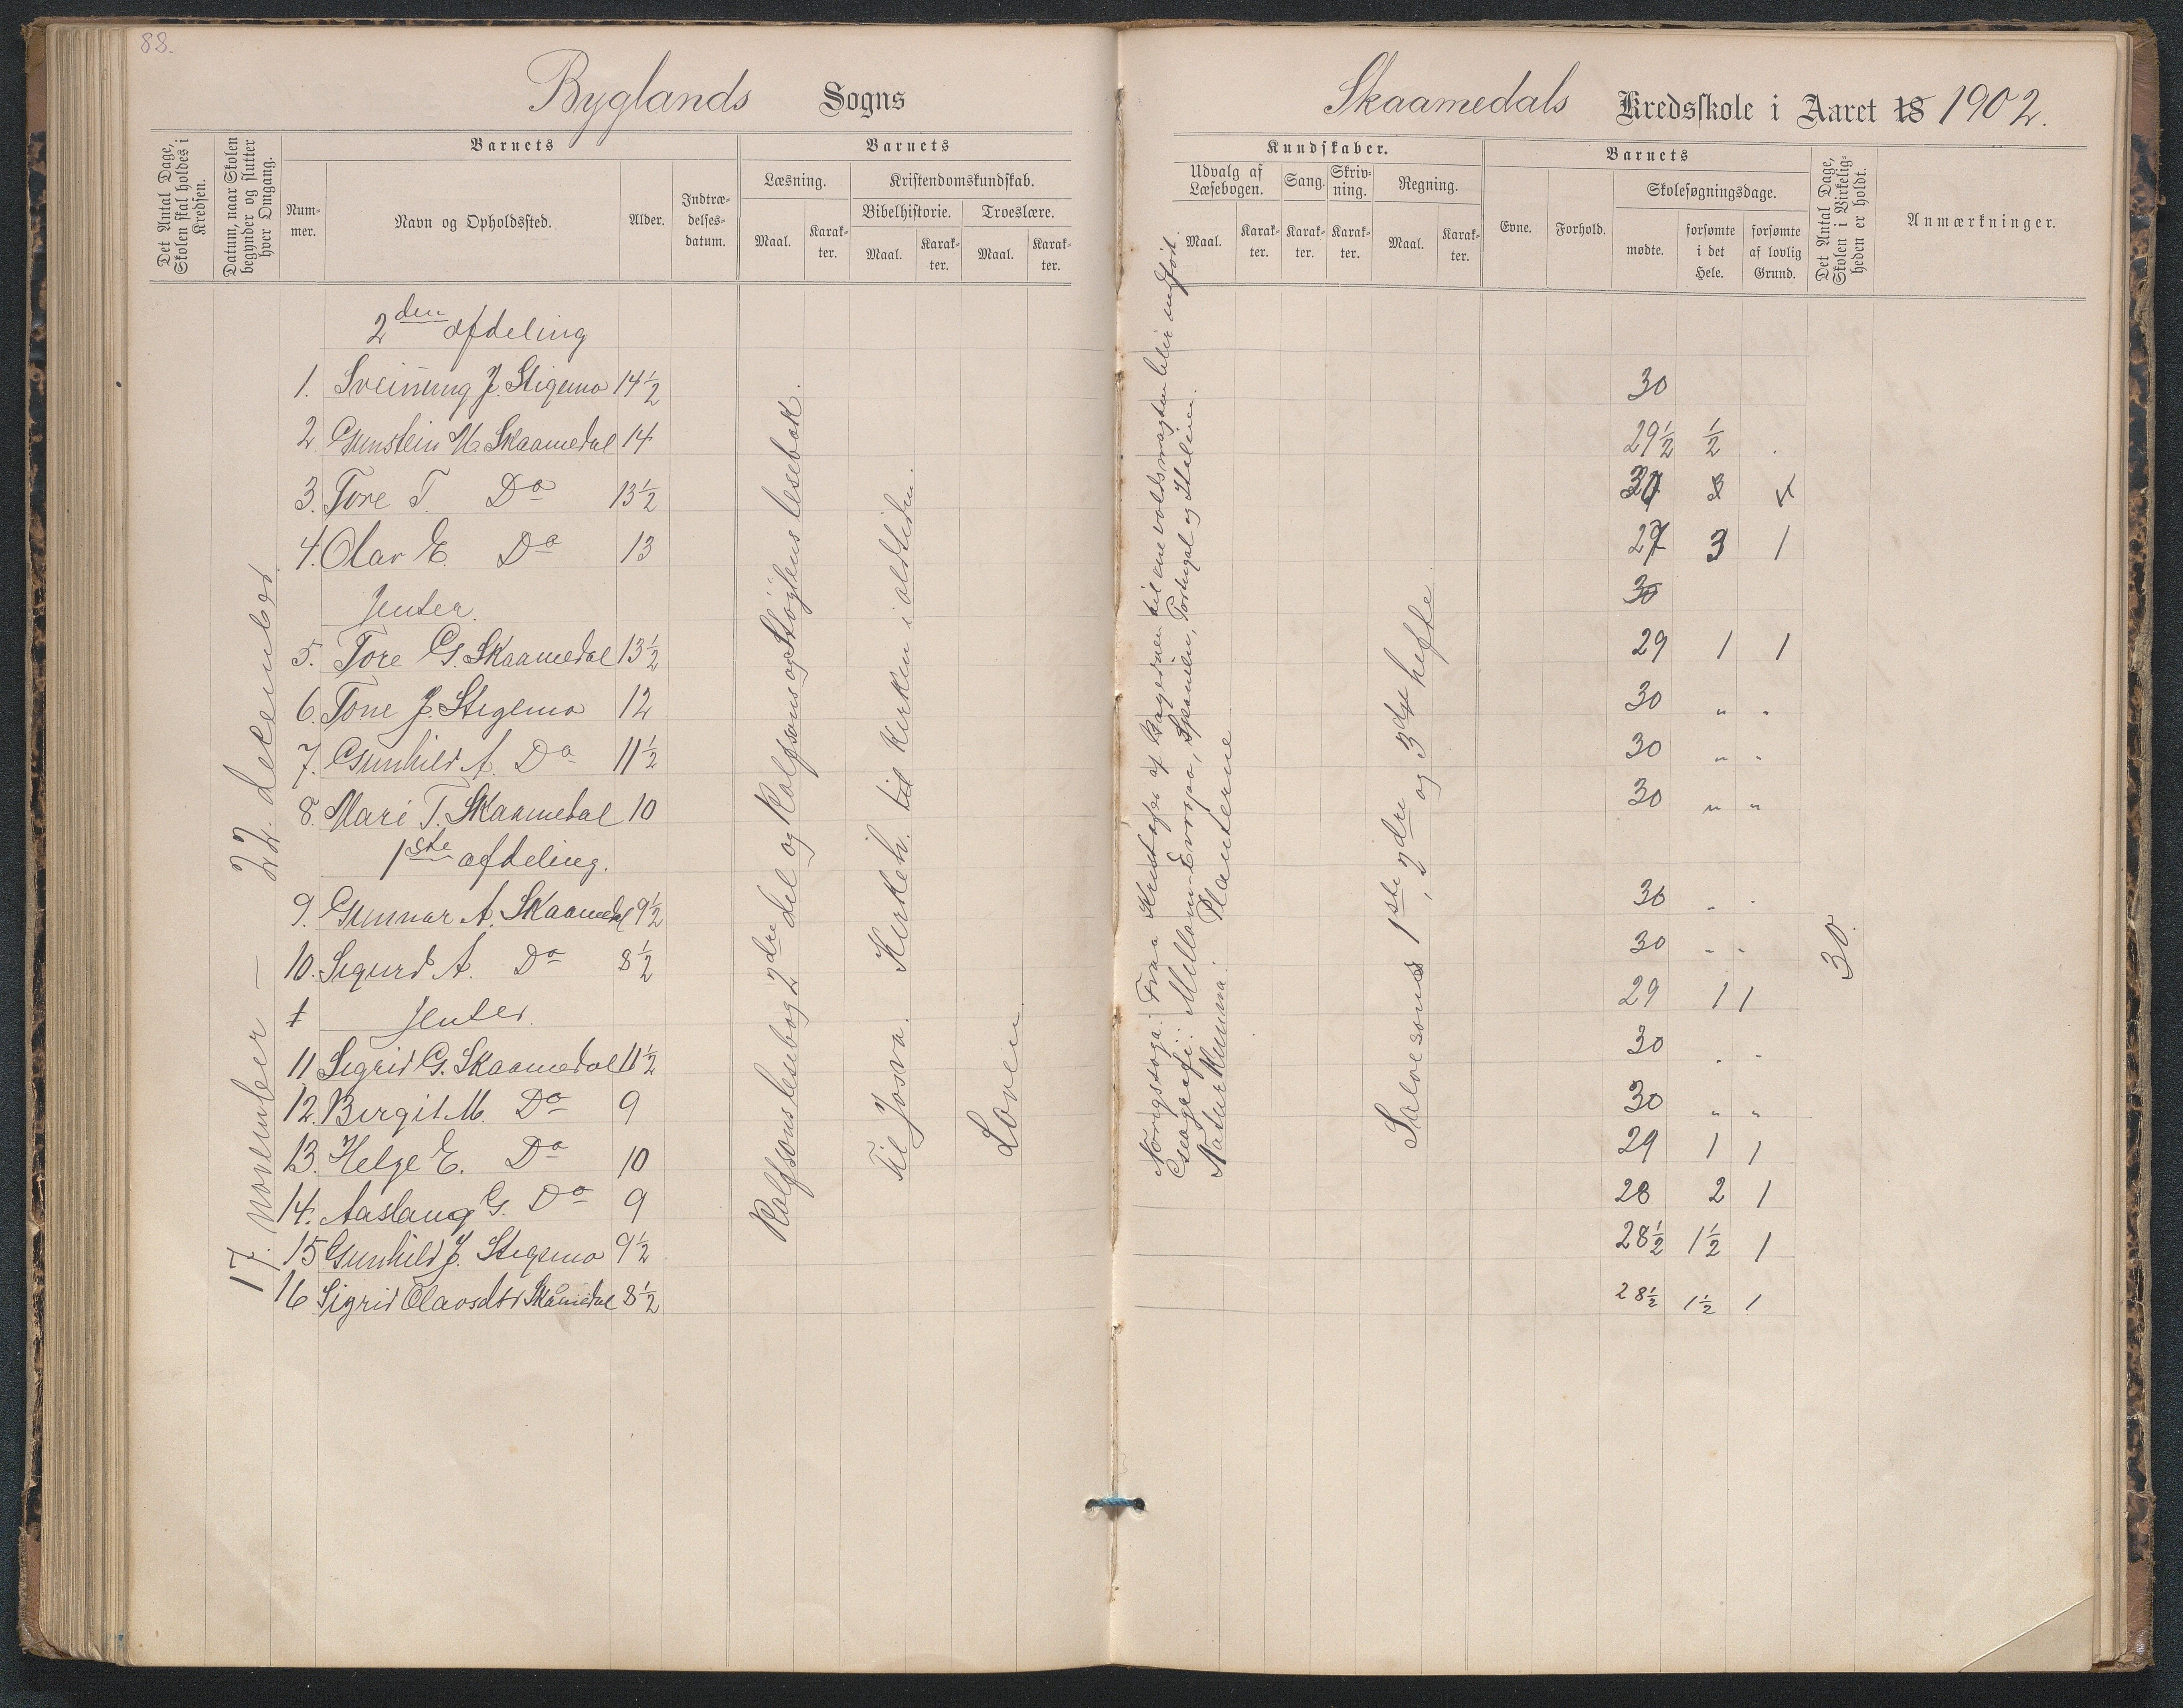 88.
Byglands Sogns
Det Antal Dage, Skolen skal holdes i Kredsen.
Datum, naar Skolen begynder og slutter hver Omgang.
Barnets
Num-mer.
Navn og Opholdssted.
Alder.
Indtræ-delses-datum.
Barnets
Læsning.
Maal.
Karak-ter.
Kristendomskundskab.
Bibelhistorie.
Troeslære.
Maal.
Karak-ter.
Maal.
Karak-ter.
17. november — 22. december.
2den afdeling
1. Sveinung J. Stigemo 14½
2. Gunstein M. Skaamedal 14
3. Tore T. Do 13½
4. Olav E. Do 13
Jenter.
5. Tore G. Skaamedal 13½
6. Tone J. Stigemo 12
7. Gunhild A. Do 11½
8. Mari T. Skaamedal 10
1ste afdeling.
9. Gunnar A. Skaamedal 9½
10. Sigurd A. Do 8½
Jenter.
11 Sigrid G. Skaamedal 11½
12. Birgit M. Do 9
13. Helge E. Do 10
14. Aaslaug G. Do 9
15 Gunhild J. Stigemo 9½
16 Sigrid Olavsdtr Skåmedal 8½
Rolfsons lesebog 2dre del og Rolfsons og Støylens lesebok.
Til Josva. Kirkeh. til kirken i oldtiden.
Loven
Skaamedals Kredsskole i Aaret 18 1902.
Kundskaber.
Udvalg af Læsebogen.
Maal.
Karak-ter.
Sang.
Karak-ter.
Skriv-ning.
Karak-ter.
Regning.
Maal.
Karak-ter.
Barnets
Evne.
Forhold.
Skolesøgningsdage.
mødte.
forsømte i det Hele.
forsømte af lovlig Grund.
Det Antal Dage, Skolen i Virkelig-heden er holdt.
Anmærkninger.
Norigssoga: Fraa til enevoldsmagten blir indført.
Geografi: Mellom-Evropa, Spanien, Portugal og Italien.
Naturkunna: Planterne
Salvesons 1ste, 2dre og 3dje hefte
30
29½ ½ .
30
27 3 1
30
29 1 1
30 " "
30 " "
30 " "
30 " "
30 " "
29 1 1
30 " "
30 " "
29 1 1
28 2 1
28½ 1½ 1
28½ 1½ 1
30.